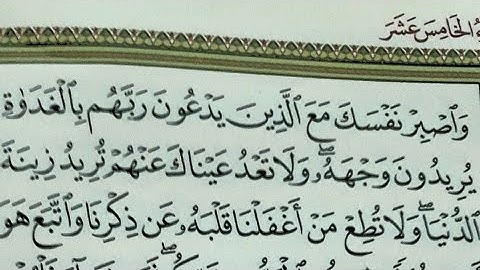 الخامس عشر
وَٱصۡبِرۡ نَفۡسَكَ مَعَ ٱلَّذِينَ يَدۡعُونَ رَبَّهُم بِٱلۡغَدَوٰةِ
يُرِيدُونَ وَجۡهَهُۥۖ وَلَا تَعۡدُ عَيۡنَاكَ عَنۡهُمۡ تُرِيدُ زِينَةَ
ٱلدُّنۡيَاۖ وَلَا تُطِعۡ مَنۡ أَغۡفَلۡنَا قَلۡبَهُۥ عَن ذِكۡرِنَا وَٱتَّبَعَ